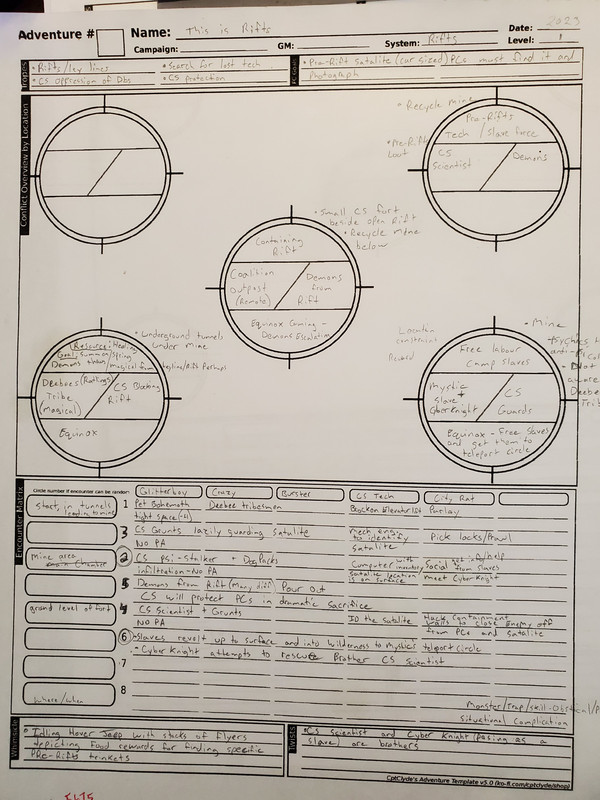 2023
Adventure # Name: This is Rifts Date:
Campaign: GM: System: Rifts Level: 1
Tropes
• Rifts/ley lines • Search for lost tech
• CS oppression of Dbs • CS protection
• Pre-Rift Satalite (car sized) PCs must find it and
photograph
Conflict Overview by Location
• Recycle mine
Pre-Rifts
Tech / Slave force
• Pre-Rift
Loot
CS
Scientist
Demons
• Small CS fort
beside open Rift
• Recycle Mine
below
Containing
Rift
Coalition
Outpost
(Remote)
Demons
from
Rift
Equinox Coming -
Demons Escalation
• Underground tunnels
under Mine
Resource: Healing
Spring
Goal: Summon
Demons thru
magical from leyline/Rift Perhaps
Deebees (Ratlings)
Tribe
(Magical)
CS Blocking
Rift
Equinox
Location
constraints
Reward
• Mine
Free labour
Camp Slaves
Mystic
+
Slave
CyberKnight
CS
Guards
Equinox - Free Slaves
and get them to
teleport circle
Encounter Matrix
Circle number if encounter can be random
Glitterboy Crazy Burster CS Tech City Rat
starts in tunnels
leading to mine
1 Pet Behemoth Deebee tribesmen Broken Elevator lift Parlay
tight space (-1)
3 CS Grunts lazily guarding satalite Mech eng. to identify Satalite Pick locks/Prowl
No PA
mine area
2 CS psi-stalker + Dog Packs Computer with inventory Social get info/help from Slaves
infiltration - No PA Satalite location is on surface meet CyberKnight
5 Demons from Rift (Many diff) Pour out
CS will protect PCs in dramatic sacrifice
grand level of fort
4 CS Scientist + Grunts ID the Satalite Hack Containment walls to close enemy off
No PA from PCs and satalite
6 - Slaves revolt up to surface and into wilderness to mystics teleport circle
- Cyber Knight attempts to rescue Brother CS Scientist
7
8
where/when
Monster/Trap/Skill-Obstical/
Situational Complication
Whimsie
• Idling Hover Jeep with stacks of flyers
depicting Food rewards for finding specific
PRE-Rifts trinkets
Twists
• CS scientist and Cyber Knight (posing as a
slave) are brothers
CptClyde's Adventure Template v5.0 (ko-fi.com/cptclyde/shop)